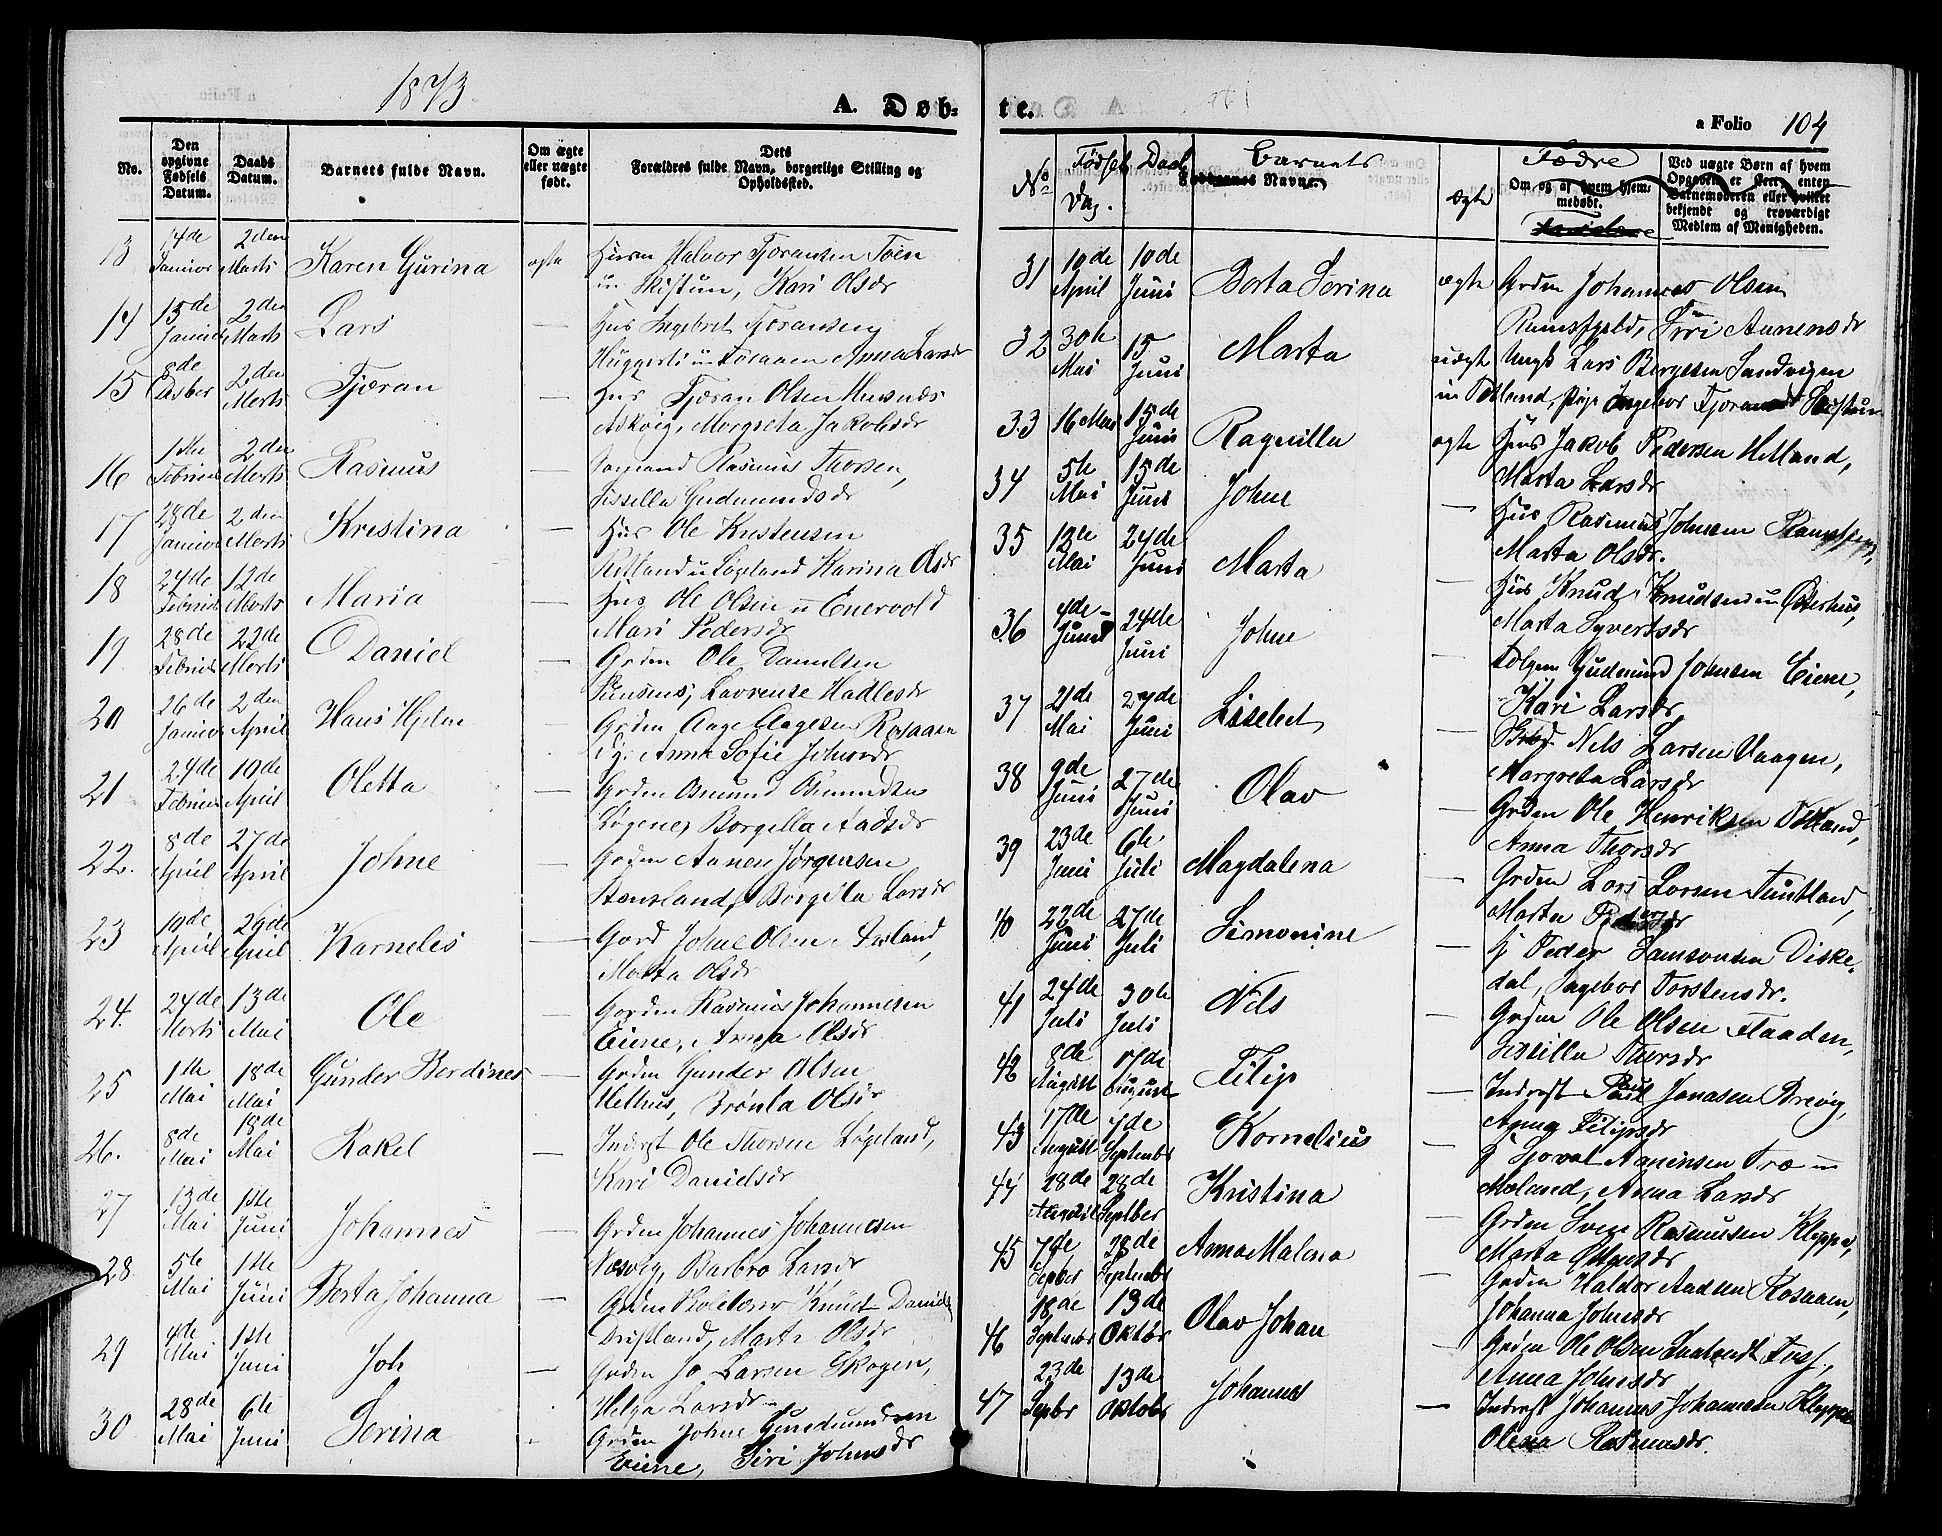 1873
A. Døb-
No.
Den opgivne Fødsels Datum.
Daabs Datum.
Barnets fulde Navn.
Om ægte eller uægte født.
Dets Forældres fulde Navn, borgerlige Stilling og Opholdssted.
13 14de Januar 2den Marts Karen Gurina ægte Husm Halvor Tjøransen Töen
u Skistun, Kari Olsdr
14 15de Januar 2den Marts Lars — Hus Ingebret Tjøransen
Huggerli u Fosaaen Anna Larsdr
15 8de Desber 2den Marts Tjøran — Hus Tjøran Olsen
Askvig, Margreta Jakobsdr
16 1ste Februar 2den Marts Rasmus — Rasmus Thorsen,
Sissella Gudmundsdr
17 28de Januar 2den Marts Kristina — Hus Ole Kristensen
Rettland u Løgland Karina Olsdr
18 24de Februar 12de Marts Maria — Hus Ole Olsen u Enervold
Mari Pedersdr
19 28de Februar 22de Marts Daniel — Grdm Ole Danielsen
Lavrense Hadlesdr
20 26de Januar 2den April Hans Hjelm Grdm Aage Aagesen Rosaaen
Anna Sofie Johnsdr
21 24de Februar 10de April Oletta — Grdm Osmund Osmundsen
Løgene, Borgilla Aadsdr
22. 8de April 27de April Johne — Grdm Aanen Jørgensen
Stensland, Børgila Larsdr
23 10de April 26de April Karnelis — Gard Johne Olsen
Marta Olsdr
24. 24de Marts 13de Mai Ole — Grdm Rasmus Johannesen
Eiene, Anna Olsdr
25 1ste Mai 18de Mai Gunder Berdines — Grdm Gunder Olsen
Melhus, Brønla Olsdr
26. 8de Mai 18de Mai Rakel — Inderst Ole Thorsen Løgland,
Kari Danielsdr
27 13de Mai 1ste Juni Johannes — Grdm Johannes Johannesen
Næsvig, Barbro Larsdr
28. 5te Mai 1ste Juni Berta Johanna — Grdm Knut Daniels
Dristland, Marta Olsdr
29 4de Mai 1ste Juni Joh — Grdm Jo Larsen Skogen,
Helga Larsdr
30 28de Mai 6te Juni Serina - Grdm Johne Gundmundsen
Eiene, Siri Johnsdr
te.
a Folio 104
No
Fødsels Dag.
Daab
Barnets Navne.
ægte
Fædre
Om og af hvem hjemmedøbt.
Ved uægte Børn af hvem Opgaven er skeet enten Barnemoderen eller hvilket bekjendt og troværdigt Medlem af Menigheden.
31 19de April 10de Juni Berta Serina ægte Grdm Johannes Olsen
Siri Aanensdr
32 30te Mai 15 Juni Marta uægte Ungk Lars Børgesen Sandvigen
u Tøtland, pige Ingebor Tjøransdr Skistun
33 16 Mai 15de Juni Ragnilla ægte Hus Jakob Pedersen Helland,
Marta Larsdr
34 5te Mai 15de Juni Johne — Hus Rasmus Johnsen
Marta Olsdr.
35 12de Mai 24de Juni Marta — Hus Knud Knudsen u Østerhus,
Marta Syvertsdr
36 4de Juni 24de Juni Johne — Gudmund Johnsen Eiene,
Kari Larsdr
37 21de Mai 27de Juni Lisebet — Nels Larsen Vaagen,
Margreta Larsdr
38 9de Juni 27de Juni Olav — Grdm Ole Henriksen Tøtland,
Anna Thorsdr
39 23de Juni 6te Juli Magdalena — Grdm Lars Larsen Tuntland,
Marta Pedersdr
40 22de Juni 27de Juli Simonine — G Peder Samsonsen Diske-
dal, Ingebor Torstensdr.
41 24de Juli 30te Juli Nils — Grdm Ole Olsen Flaaden,
Sissilla Thorsdr
42 8de August 17de August Filip — Inderst Paul Jonasen Brevig,
Filipsdr
43 17de August 7de Septembr Kornelius — G Sjoval Træ u
Møland, Anna Larsdr
44 28de August 28de Septber Kristina — Grdm Sven Rasmusen Kleppa,
Marta
45 7de Septber 28de Septembr Anna Malena — Grdm Haldor Aadsen Rosaaen,
Johanna Johnsdr
46 18de Septembr 13de Oktobr Olav Johan — Grdm Ole Olsen
Anna Johnsdr
47 23de Septbr 13de Oktobr Johannes — Inderst Johannes Johannesen Kleppa
Olena Rasmusdr.